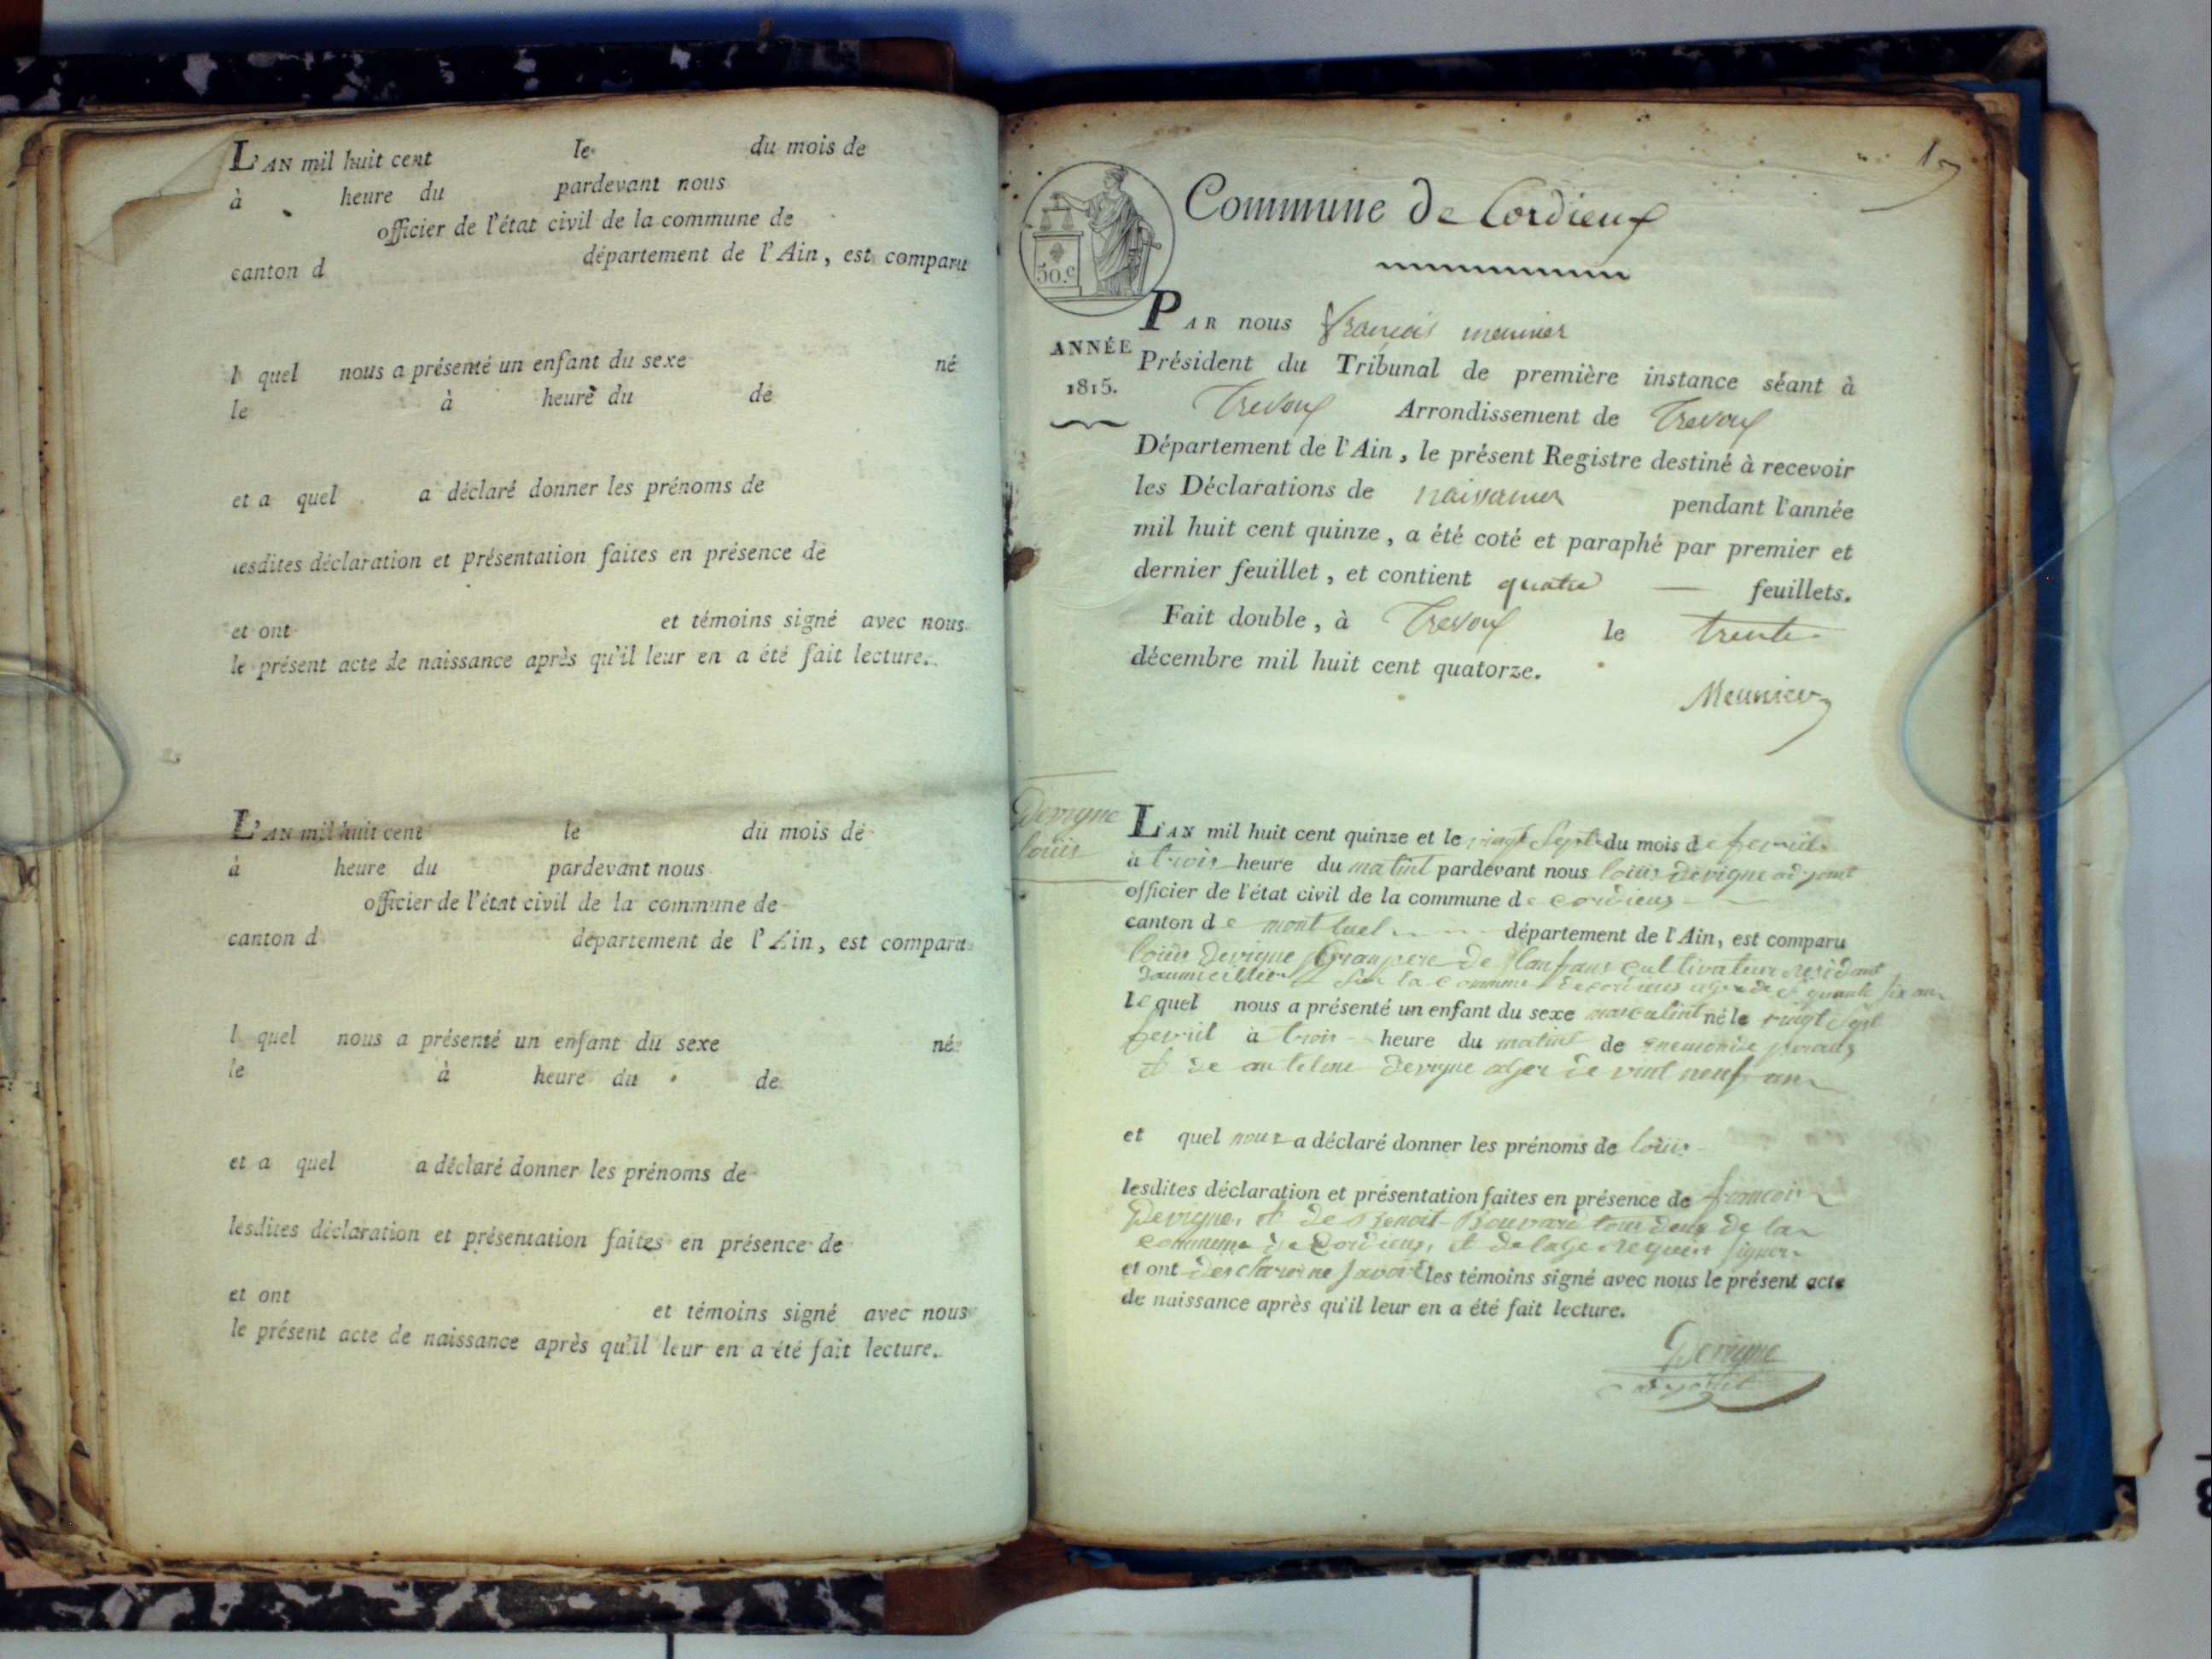 L'AN mil huit cent le du mois de
à heure du pardevant nous
officier de l'état civil de la commune de
canton d département de l'Ain, est comparu
l quel nous a présenté un enfant du sexe né
le à heure du de
et a quel a déclaré donner les prénoms de
lesdites déclaration et présentation faites en présence de
et ont et témoins signé avec nous
le présent acte de naissance après qu'il leur en a été fait lecture.
L'AN mil huit cent le du mois de
à heure du pardevant nous
officier de l'état civil de la commune de
canton d département de l'Ain, est comparu
l quel nous a présenté un enfant du sexe né
le à heure du de
et a quel a déclaré donner les prénoms de
lesdites déclaration et présentation faites en présence de
et ont et témoins signé avec nous
le présent acte de naissance après qu'il leur en a été fait lecture.
1
Commune de Cordieux
50.c
PAR nous François meunier
ANNÉE
1815.
Président du Tribunal de première instance séant à
Trevoux Arrondissement de Trevoux
Département de l'Ain, le présent Registre destiné à recevoir
les Déclarations de naissances pendant l'année
mil huit cent quinze, a été coté et paraphé par premier et
dernier feuillet, et contient quatre feuillets.
Fait double, à Trevoux le trente
décembre mil huit cent quatorze.
Meunier
Devigne
louis
L'AN mil huit cent quinze et le vingt Sept du mois de fevril
à trois heure du matint pardevant nous louis devigne adjoint
officier de l'état civil de la commune de cordieux
canton de montluel département de l'Ain, est comparu
louis devigne Granpere de lanfans cultivateur residant
sur la commune de cordieux six an
le quel nous a présenté un enfant du sexe masculint né le vingt Sept
fevril à trois heure du matint de
et de devigne de vint neuf an
et quel nous a déclaré donner les prénoms de louis
lesdites déclaration et présentation faites en présence de francois
Devigne, et de Benoit Bouvard tous deux de la
commune de Cordieux, et de lage requis signer
et ont desclarer ne savoir les témoins signé avec nous le présent acte
de naissance après qu'il leur en a été fait lecture.
Devigne
adjoint